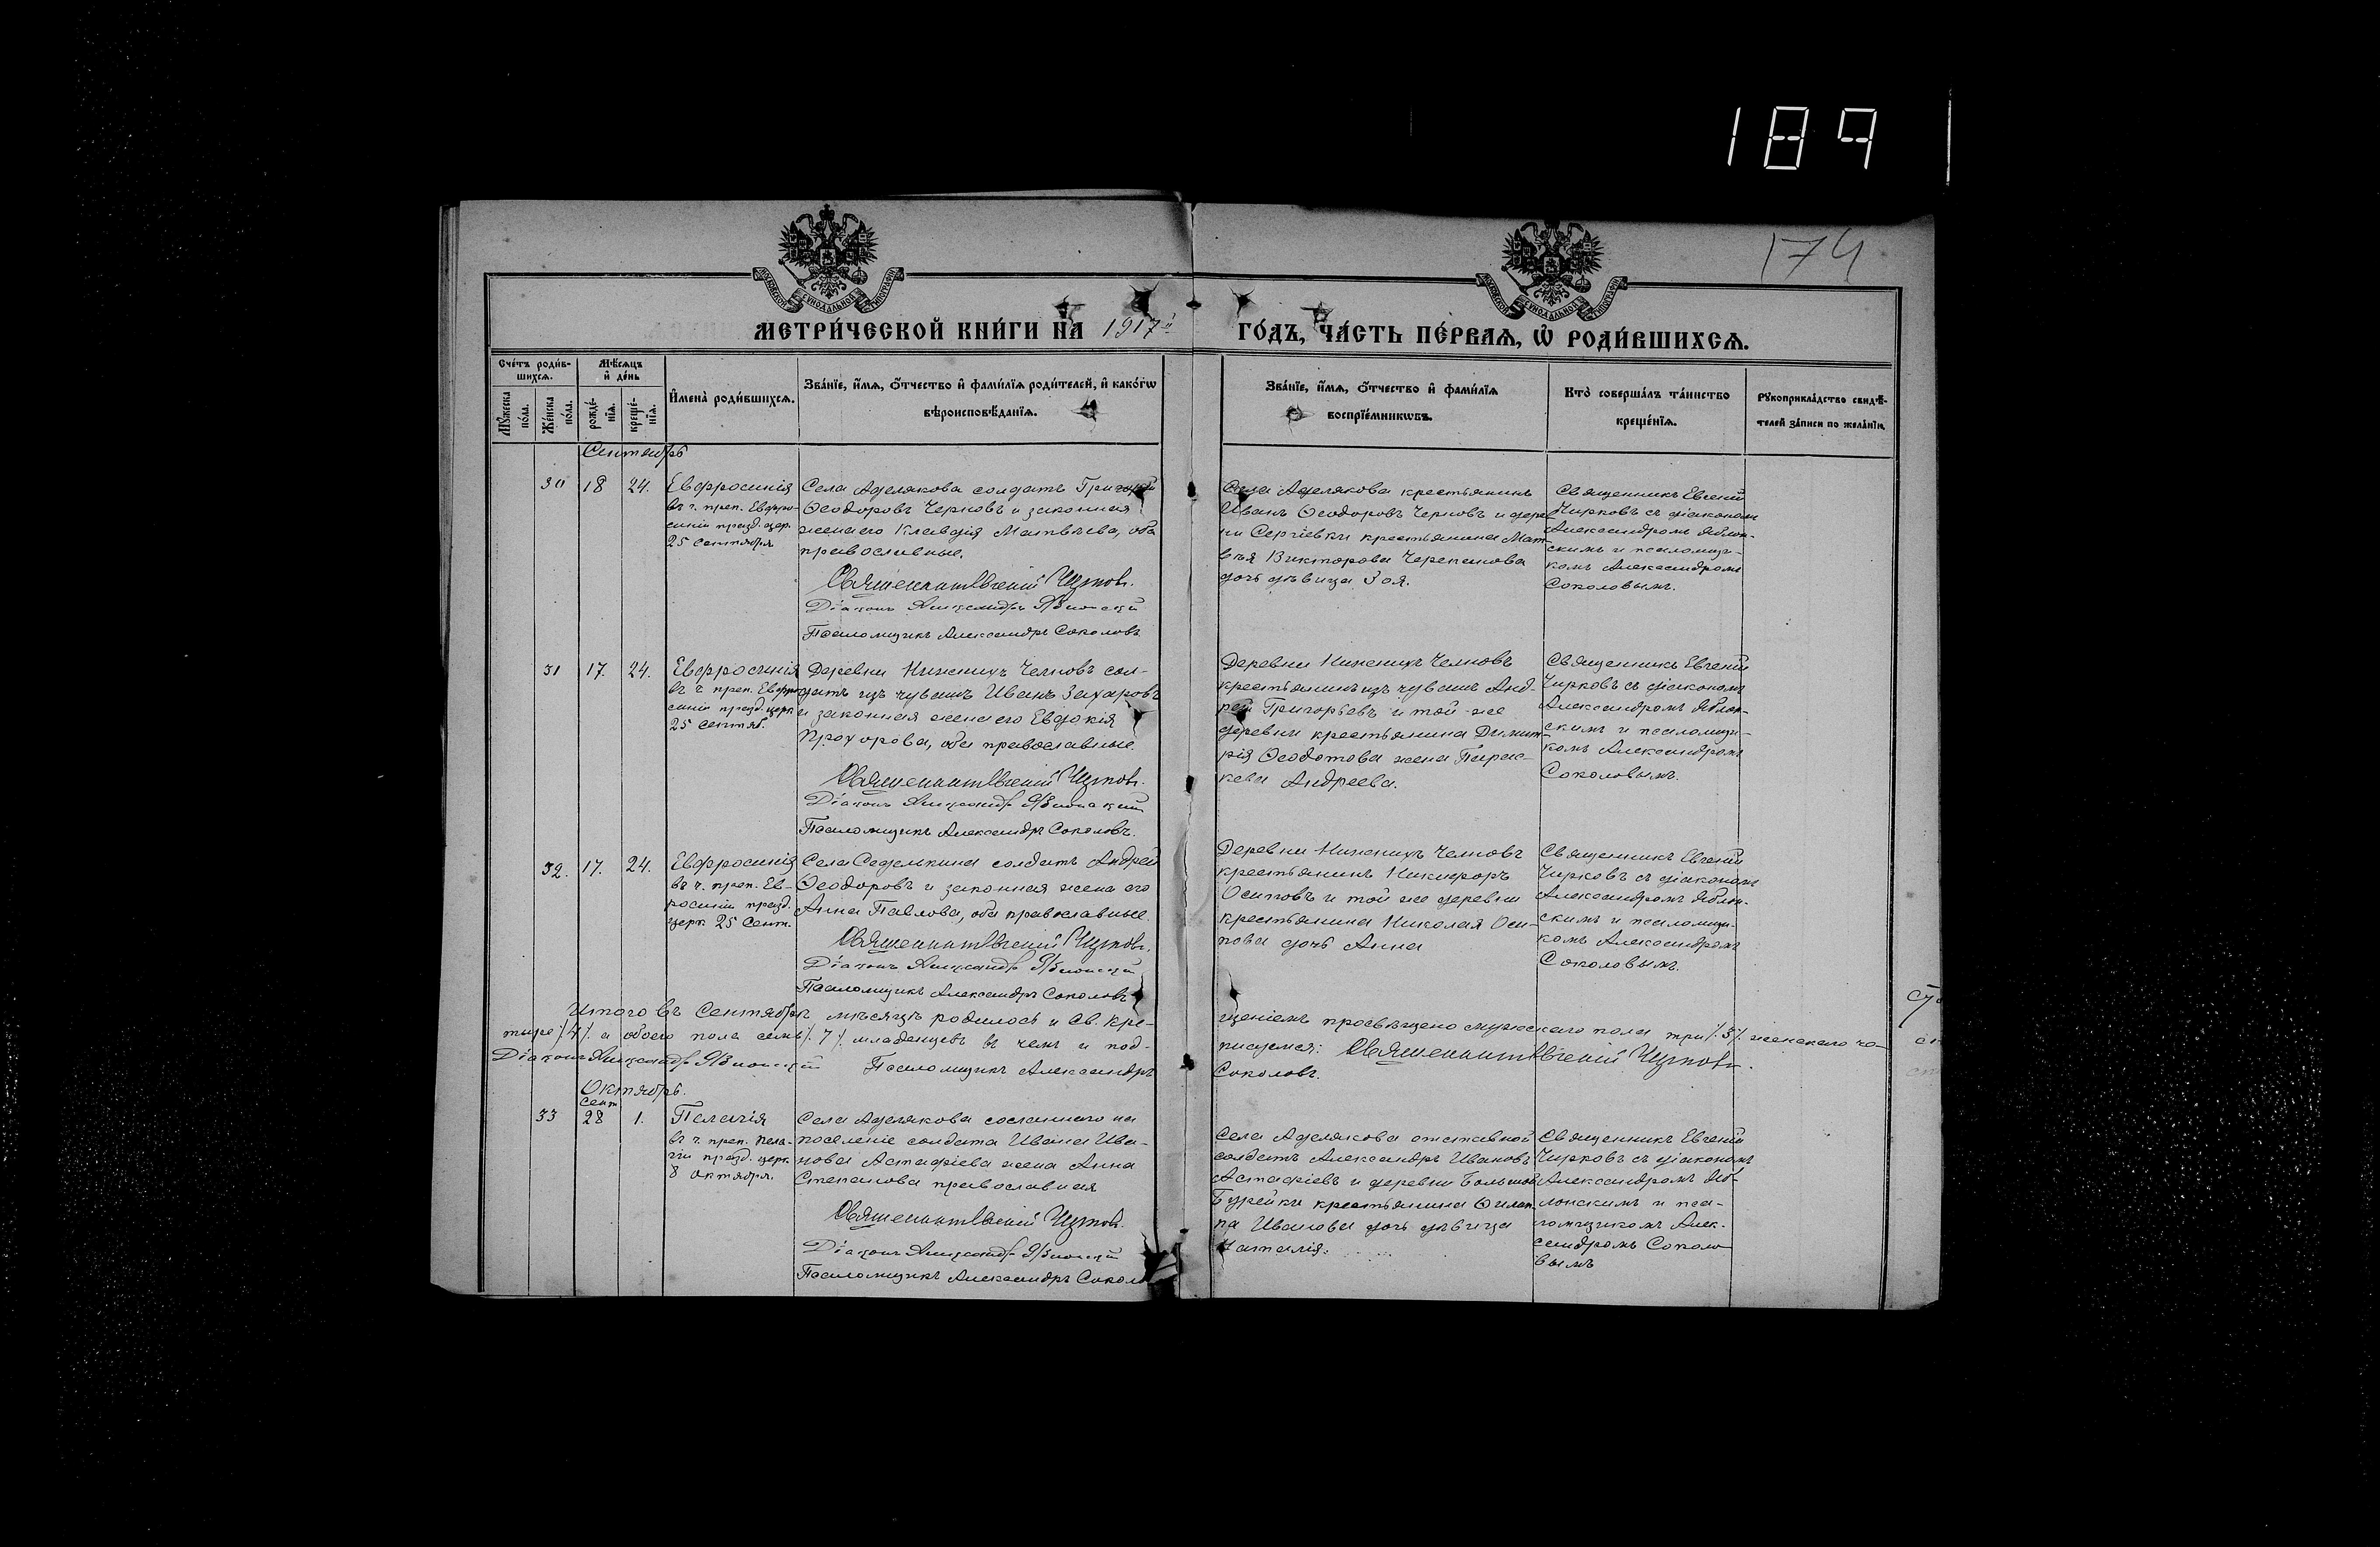 189
174
МОСКОВСКОЙ СѴНОДАЛЬНОЙ ТИПОГРАФІИ
МОСКОВСКОЙ СѴНОДАЛЬНОЙ ТИПОГРАФІИ
МЕТРИ́ЧЕСКОЙ КНИ́ГИ НА 1917й ГО́ДЪ, ЧА́СТЬ ПЕ́РВАѦ, Ѡ҆ РОДИ́ВШИХСѦ.
Сче́тъ роди́в-
шихсѧ.
Мѣ́сѧцъ
и҆ де́нь
Мꙋ́жеска
по́ла.
Же́нска
по́ла.
рожде́-
нїѧ.
креще́-
нїѧ.
И҆мена̀ роди́вшихсѧ.
Зва́нїе, и҆́мѧ, ѻ҆́тчество и҆ фами́лїѧ роди́телей, и҆ како́гѡ
вѣроисповѣ́данїѧ.
Зва́нїе, и҆́мѧ, ѻ҆́тчество и҆ фами́лїѧ
воспрїе́мникѡвъ.
Кто̀ соверша́лъ та́инство
креще́нїѧ.
Рꙋкоприкла́дство свидѣ́-
телей за́писи по жела́нїю.
Сентябрь
30 18 24.
Евфросинія
въ ч. преп. Евфро-
синіи празд. цер.
25 сентября
Села Аделякова солдатъ Григорій
Ѳеодоровъ Черновъ и законная
жена его Клавдія Матвѣева, оба
православные.
Священникъ Евгеній Чирковъ.
Діаконъ Александръ Яблонскій
Псаломщикъ Александръ Соколовъ
Села Аделякова крестьянинъ
Иванъ Ѳеодоровъ Черновъ и дерев
ни Сергіевки крестьянина Мат-
вѣя Викторова Черепанова
дочь дѣвица Зоя.
Священникъ Евгеній
Чирковъ съ діакономъ
Александромъ Яблон-
скимъ и псаломщи-
комъ Александромъ
Соколовымъ.
31 17. 24.
Евфросинія
въ ч. преп. Евфро
синіи празд. церк
25 сентяб.
Деревни Нижнихъ Челновъ сол-
датъ изъ чувашъ Иванъ Захаровъ
и законная жена его Евдокія
Прохорова, оба православные
Священникъ Евгеній Чирковъ.
Діаконъ Александръ Яблонскій
Псаломщикъ Александръ Соколовъ.
Деревни Нижнихъ Челновъ
крестьянинъ изъ чувашъ Анд-
рей Григорьевъ и той же
деревни крестьянина Димит-
рія Ѳеодотова жена Парас-
кева Андреева.
Священникъ Евгеній
Чирковъ съ діакономъ
Александромъ Яблон-
скимъ и псаломщи-
комъ Александромъ
Соколовымъ.
32. 17. 24.
Евфросинія
въ ч. преп. Ев-
росиніи празд.
церк 25 Сент.
Села Седелькина солдатъ Андрей
Ѳеодоровъ и законная жена его
Анна Павлова, оба православные.
Священникъ Евгеній Чирковъ.
Діаконъ Александръ Яблонскій
Псаломщикъ Александръ Соколовъ
Деревни Нижнихъ Челновъ
крестьянинъ Никифоръ
Осиповъ и той же деревни
крестьянина Николая Оси-
пова дочь Анна
Священникъ Евгеній
Чирковъ съ діакономъ
Александромъ Яблон-
скимъ и псаломщи-
комъ Александромъ
Соколовымъ.
Итого въ Сентябрѣ мѣсяцѣ родилось и Св. Кре-
щеніемъ просвѣщено мужскаго пола три /.3/. женскаго че-
тыре /.4/. а обоего пола семь /.7/. младенцевъ въ чемъ и под-
писуемся: Священникъ Евгеній Чирковъ.
Діаконъ Александръ Яблонскій Псаломщикъ Александръ
Соколовъ.
Октябрь.
Сент
33 28 1.
Пелагія
въ ч. преп. Пела-
гіи празд. церк
8 октября.
Села Аделякова сосланнаго на
поселеніе солдата Ивана Ива-
нова Астафіева жена Анна
Степанова православная
Священникъ Евгеній Чирковъ.
Діаконъ Александръ Яблонскій
Псаломщикъ Александръ Соколо
Села Аделякова отставной
солдатъ Александръ Ивановъ
Астафіевъ и деревни Большой
Бурейки крестьянина Филип
па Иванова дочь дѣвица
Наталія.
Священникъ Евгеній
Чирковъ съ діакономъ
Александромъ Яб-
лонскимъ и пса-
ломщикомъ Алек-
сандромъ Соколо
вымъ